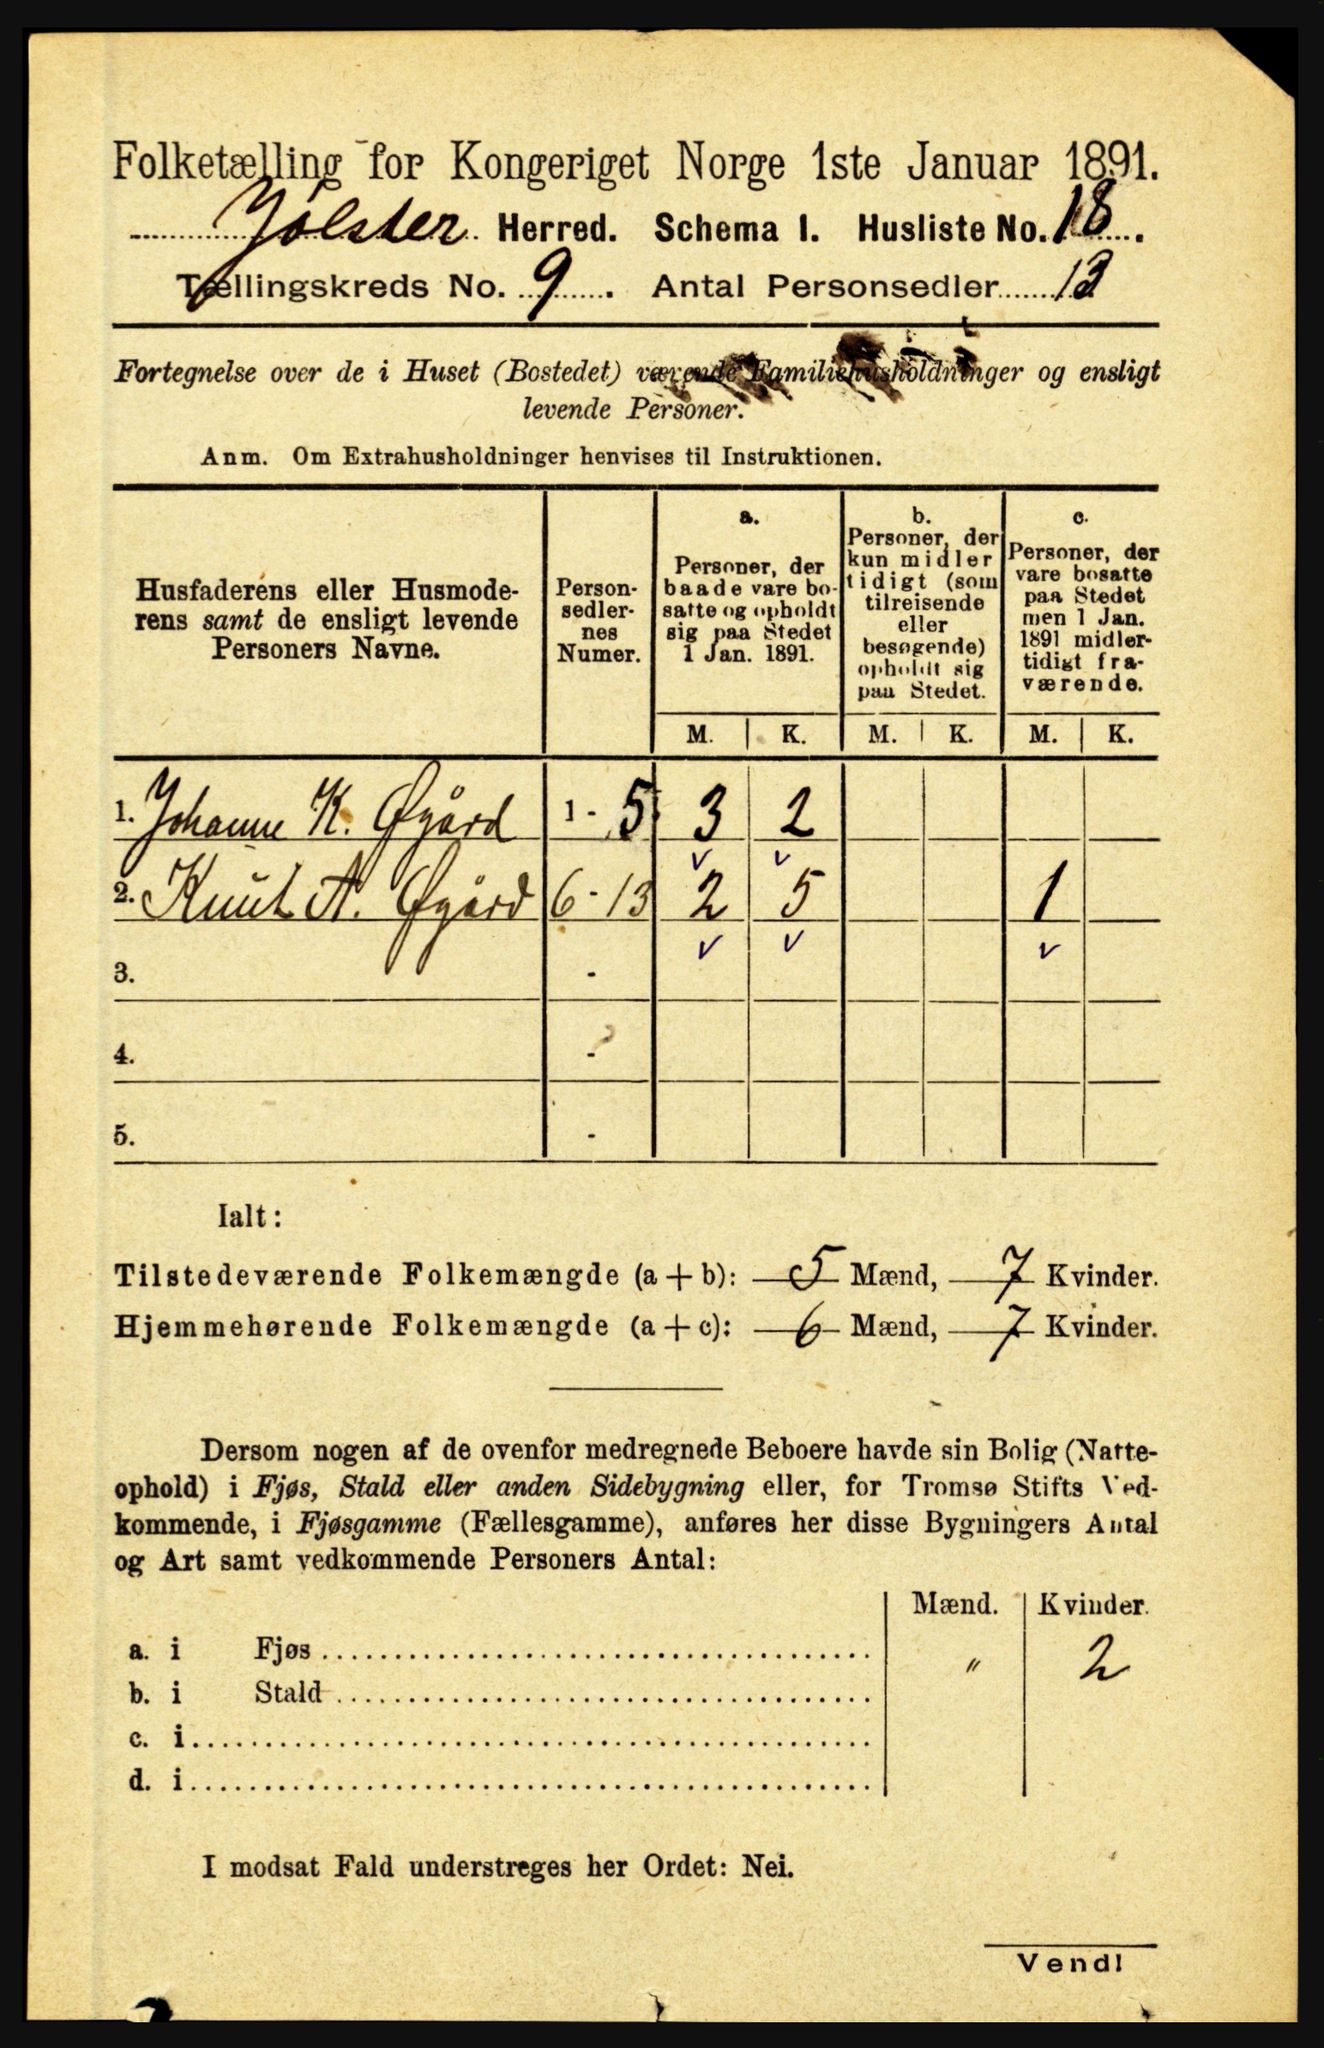 Folketælling for Kongeriget Norge 1ste Januar 1891.
Jølster Herred. Schema I. Husliste No. 18.
Tællingskreds No. 9. Antal Personsedler 13
Fortegnelse over de i Huset (Bostedet) værende Familiehusholdninger og ensligt
levende Personer.
Anm. Om Extrahusholdninger henvises til Instruktionen.
Husfaderens eller Husmode-
rens samt de ensligt levende
Personers Navne.
Person-
sedler-
nes
Numer.
a.
Personer, der
baade vare bo-
satte og opholdt
sig paa Stedet
1 Jan. 1891.
b.
Personer, der
kun midler
tidigt (som
tilreisende
eller
besøgende)
opholdt sig
paa Stedet.
c.
Personer, der
vare bosatte
paa Stedet
men 1 Jan.
1891 midler-
tidigt fra-
værende.
M. K. M. K. M. K.
1. Johanne K. Øgård 1 - 5 3 2
2. Knut A. Øgård 6 - 13 2 5 1
3. -
4. -
5. -
Ialt:
Tilstedeværende Folkemængde (a + b): 5 Mænd, 7 Kvinder.
Hjemmehørende Folkemængde (a + c): 6 Mænd, 7 Kvinder.
Dersom nogen af de ovenfor medregnede Beboere havde sin Bolig (Natte-
ophold) i Fjøs, Stald eller anden Sidebygning eller, for Tromsø Stifts Ved-
kommende, i Fjøsgamme (Fællesgamme), anføres her disse Bygningers Antal
og Art samt vedkommende Personers Antal:
Mænd. Kvinder.
a. i Fjøs " 2
b. i Stald
c. i
d. i
I modsat Fald understreges her Ordet: Nei.
Vend!